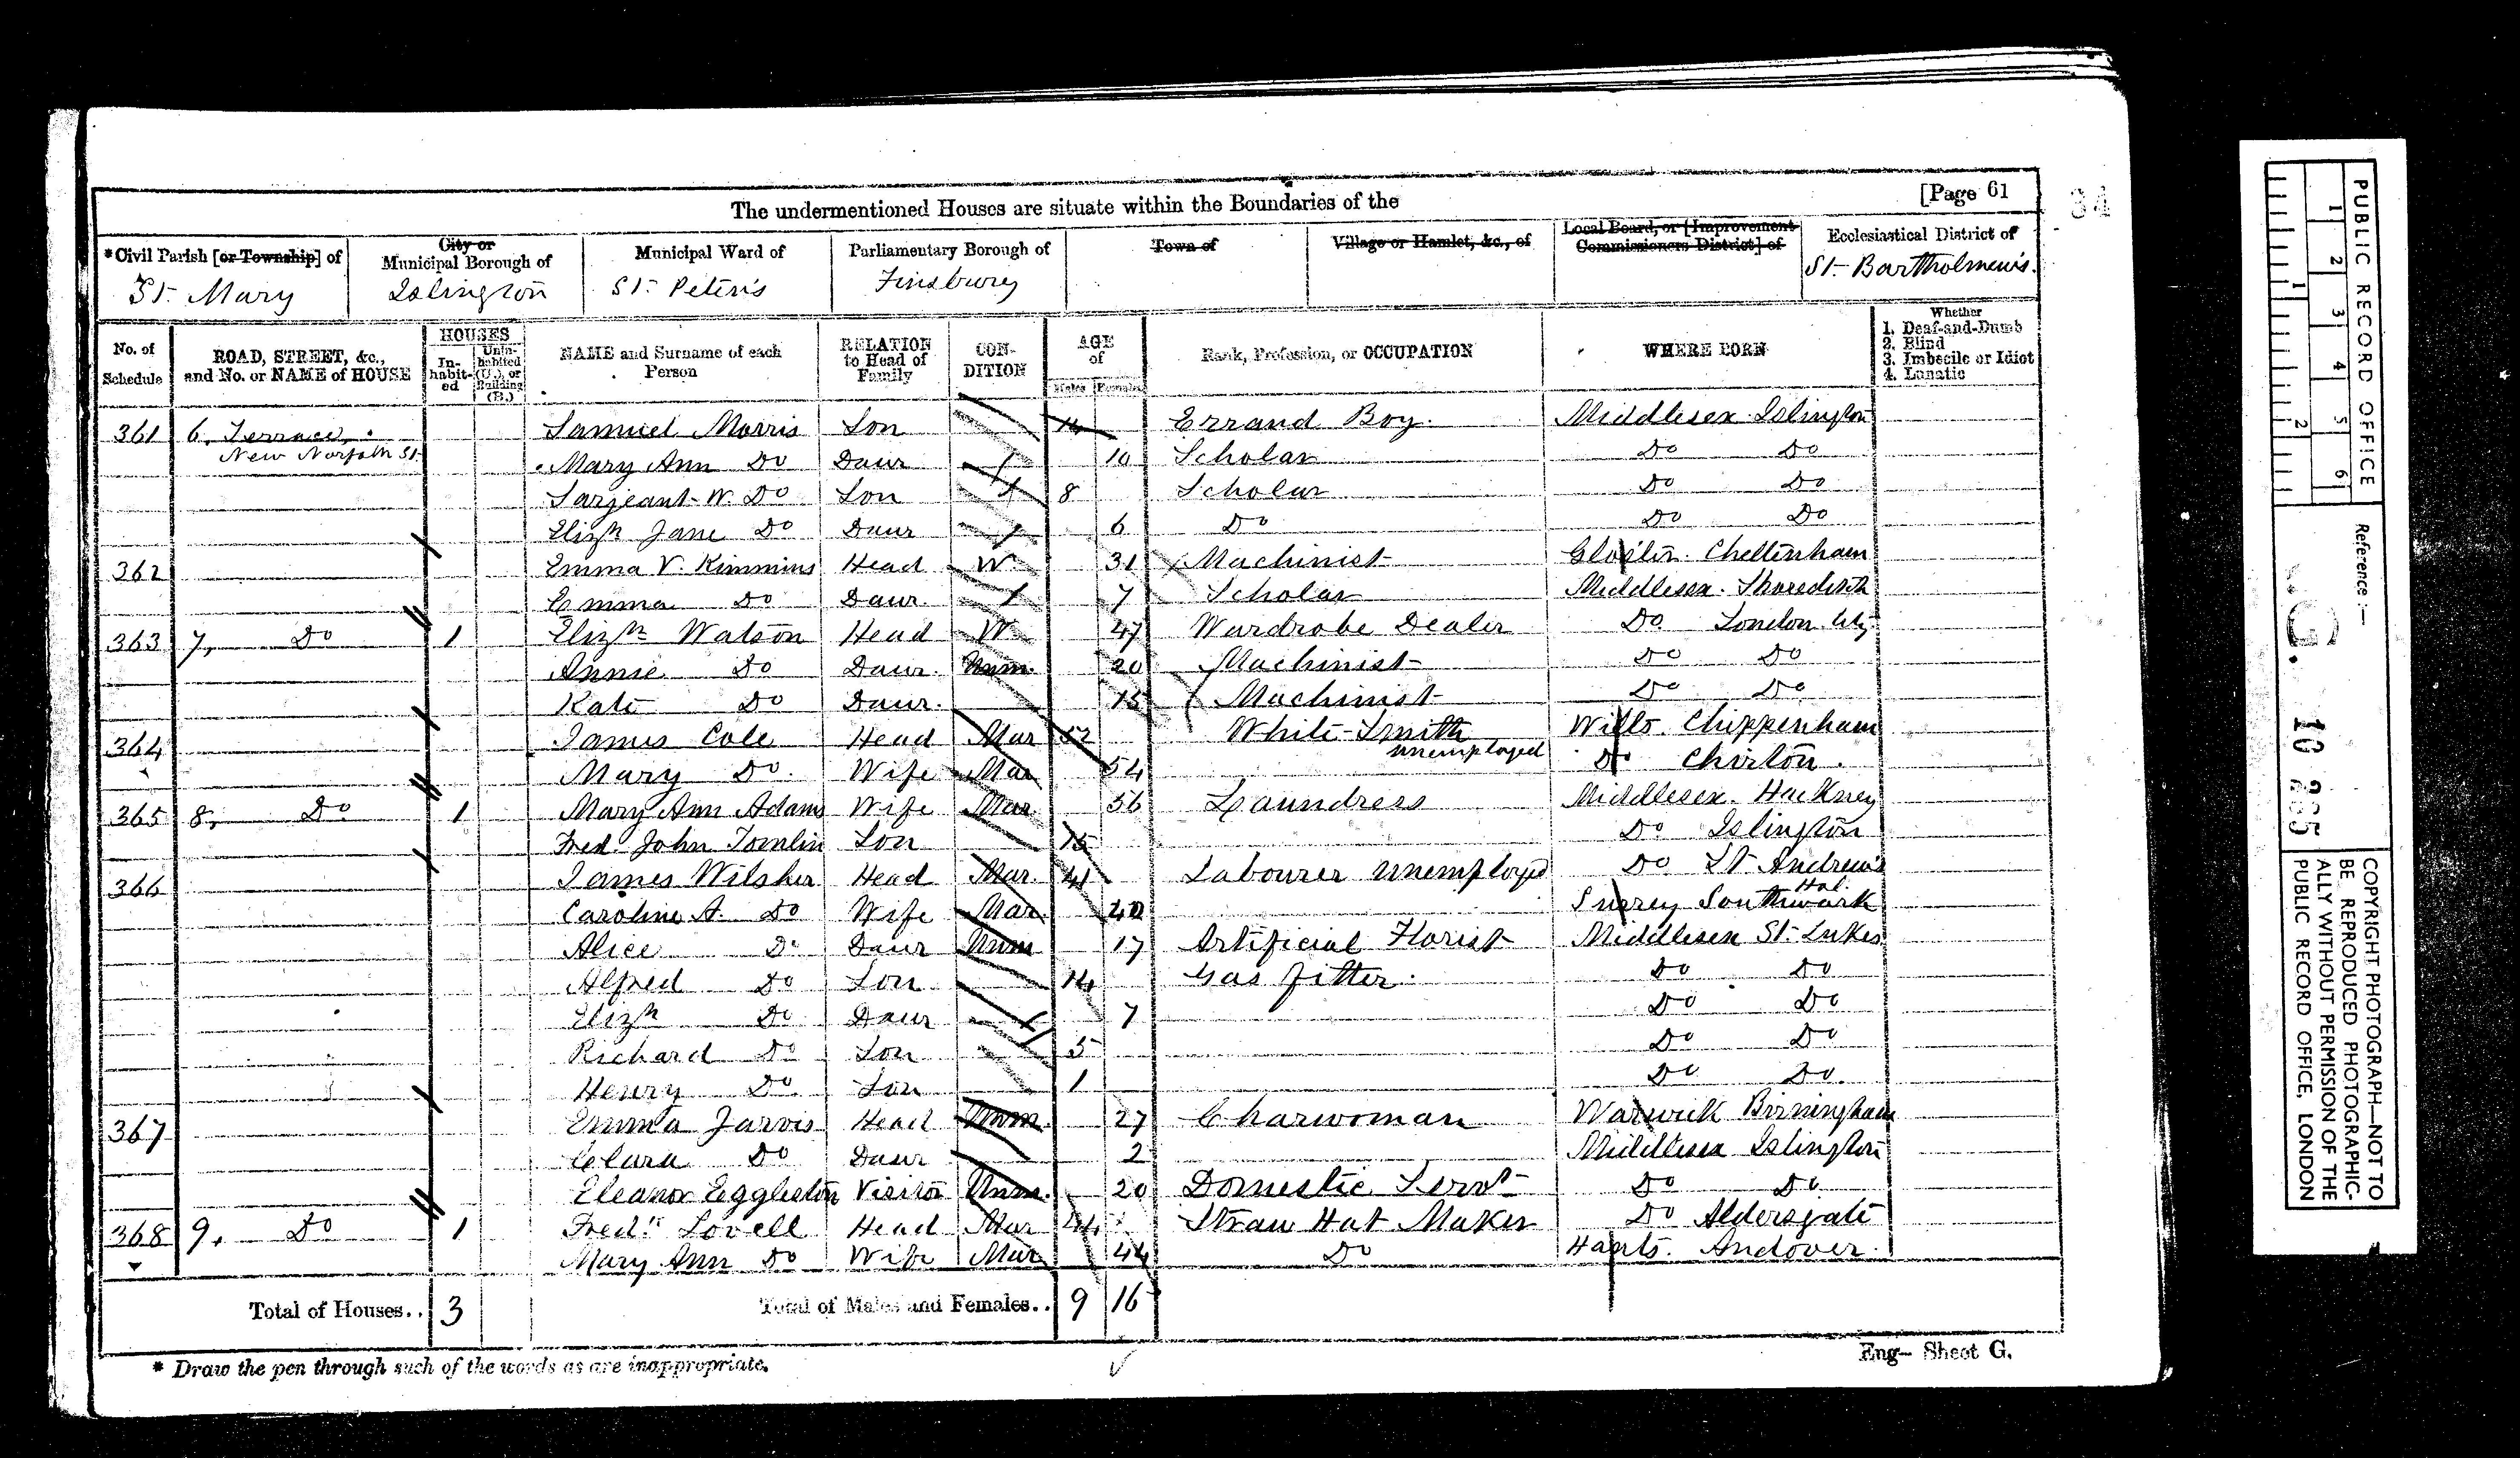 [Page 61
34
The undermentioned Houses are situate within the Boundaries of the
*Civil Parish [or Township] of St. Mary
City or Municipal Borough of Islington
Municipal Ward of St. Peter's
Parliamentary Borough of Finsbury
Town of
Village or Hamlet, &c., of
Local Board, or [Improvement Commissioners District] of
Ecclesiastical District of St. Bartholmew's.
No. of Schedule
ROAD, STREET, &c., and No. or NAME of HOUSE
HOUSES
In-habit-ed
Unin-habited (U.), or Building (B.)
NAME and Surname of each Person
RELATION to Head of Family
CON-DITION
AGE of
Males Females
Rank, Profession, or OCCUPATION
WHERE BORN
Whether
1. Deaf-and-Dumb
2. Blind
3. Imbecile or Idiot
4. Lunatic
361 6, Terrace, New Norfolk St. Samuel Morris Son 14 Errand Boy. Middlesex Islington
Mary Ann Do Daur 10 Scholar Do Do
Sarjeant W. Do Son 8 Scholar Do Do
Elizh Jane Do Daur 6 Do Do Do
362 Emma V. Kimmins Head W 31 Machinist Gloster. Cheltenham
Emma Do Daur. 7 Scholar Middlesex. Shoreditch
363 7, Do 1 Elizh Watson Head W 47 Wardrobe Dealer Do London City
Annie Do Daur. Unm. 20 Machinist Do Do
Kate Do Daur. 15 Machinist Do Do
364 James Cole Head Mar 52 White-Smith unemployed Wilts. Chippenham
Mary Do Wife Mar 54 Do Chirton.
365 8, Do 1 Mary Ann Adams Wife Mar. 56 Laundress Middlesex. Hackney
Fred. John Tomlin Son 15 Do Islington
366 James Wilsher Head Mar. 41 Labourer unemployed Do St. Andrew's Hol.
Caroline A. Do Wife Mar 40 Surrey Southwark
Alice Do Daur Unm 17 Artificial Florist Middlesex St. Lukes
Alfred Do Son 14 Gas fitter. Do Do
Elizh Do Daur 7 Do Do
Richard Do Son 5 Do Do
Henry Do Son 1 Do Do.
367 Emma Jarvis Head Unm. 27 Charwoman Warwick Birmingham
Clara Do Daur 2 Middlesex Islington
Eleanor Eggleston Visitor Unm. 20 Domestic Servt Do Do
368 9, Do 1 Fredk Lovell Head Mar 44 Straw Hat Maker Do Aldersgate
Mary Ann Do Wife Mar 44 Do Hants. Andover.
Total of Houses.. 3
Total of Males and Females.. 9 16
* Draw the pen through such of the words as are inappropriate.
Eng- Sheet G.
PUBLIC RECORD OFFICE
1 2 3 4 5 6
1 2
Reference :-
COPYRIGHT PHOTOGRAPH—NOT TO
BE REPRODUCED PHOTOGRAPHIC-
ALLY WITHOUT PERMISSION OF THE
PUBLIC RECORD OFFICE, LONDON